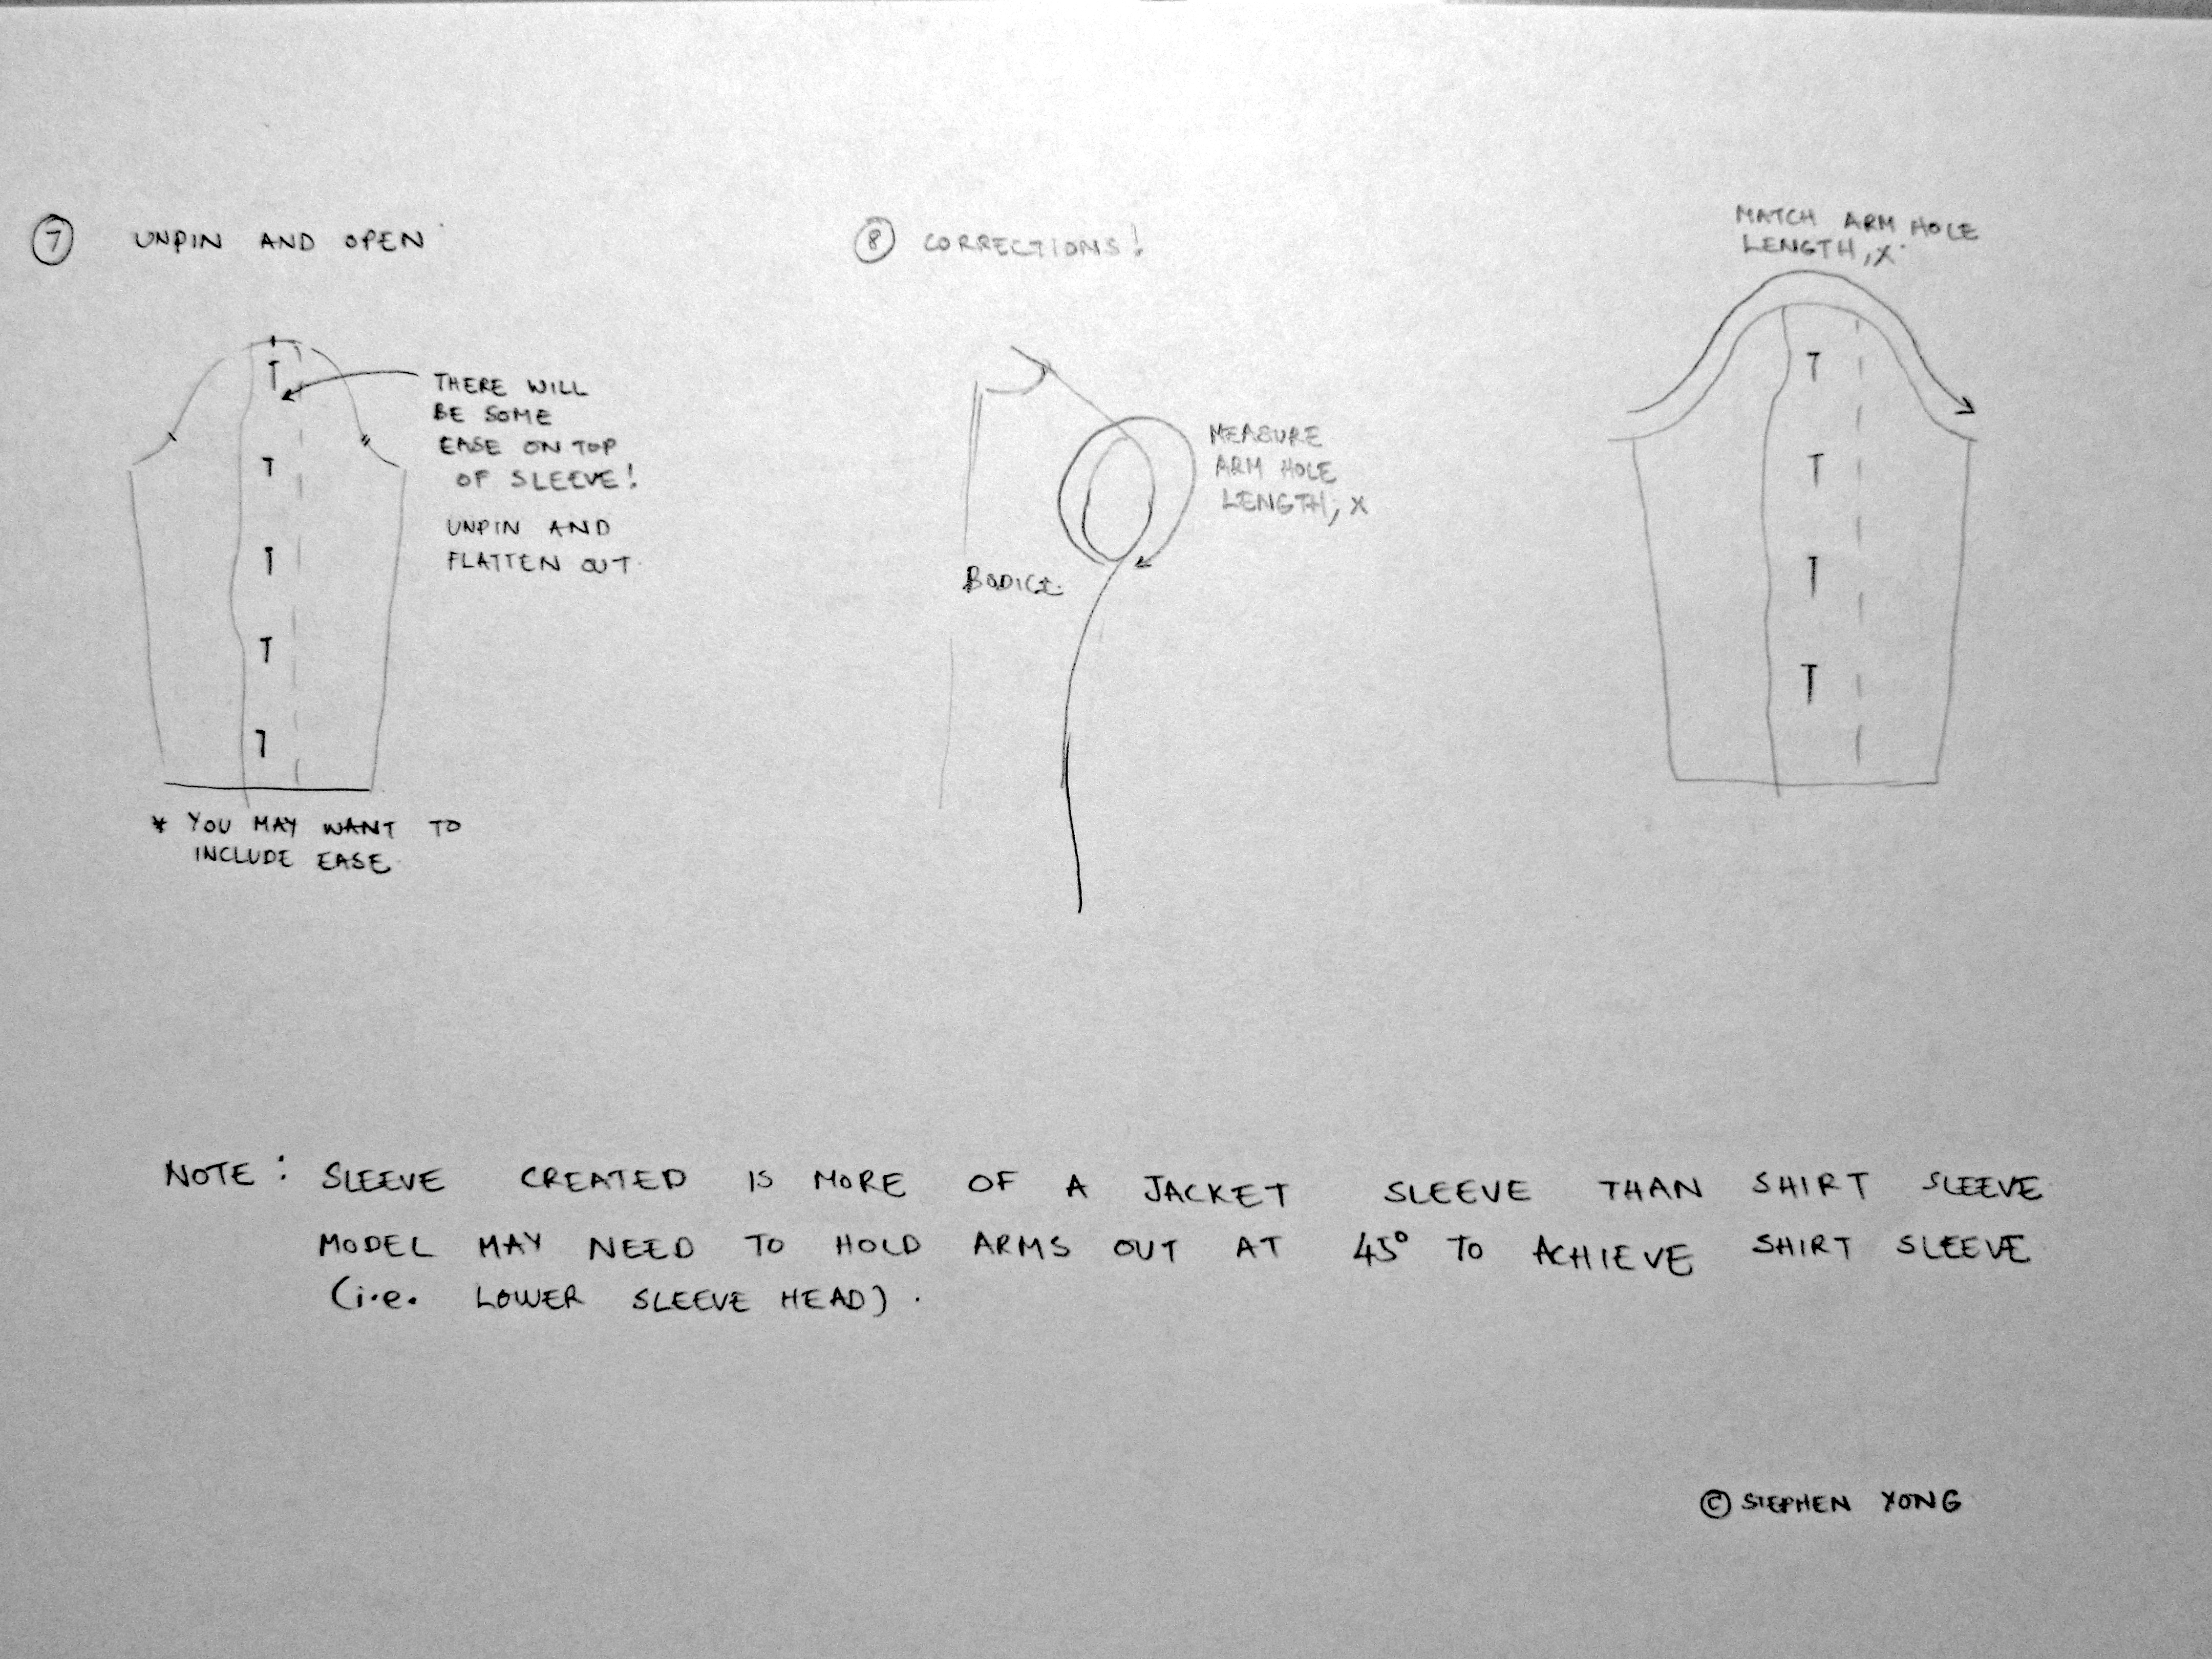 7 UNPIN AND OPEN
THERE WILL
BE SOME
EASE ON TOP
OF SLEEVE!
UNPIN AND
FLATTEN OUT
* YOU MAY WANT TO
INCLUDE EASE
8 CORRECTIONS!
MEASURE
ARM HOLE
LENGTH, X
BODICE
MATCH ARM HOLE
LENGTH, X
NOTE: SLEEVE CREATED IS MORE OF A JACKET SLEEVE THAN SHIRT SLEEVE
MODEL MAY NEED TO HOLD ARMS OUT AT 45° TO ACHIEVE SHIRT SLEEVE
(i.e. LOWER SLEEVE HEAD).
© STEPHEN YONG